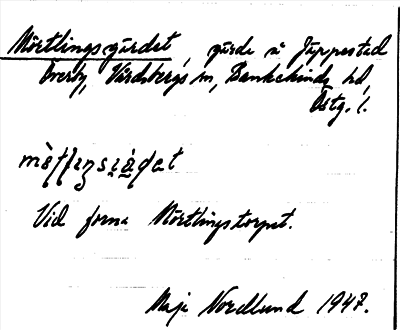 Mörtlingsgärdet, gärde å Jäppestad
Överby, Vårdsbergs sn, Bankekinds hd,
Östg. l.
Vid forna Mörtlingstorpet.
Maja Nordlund 1947.